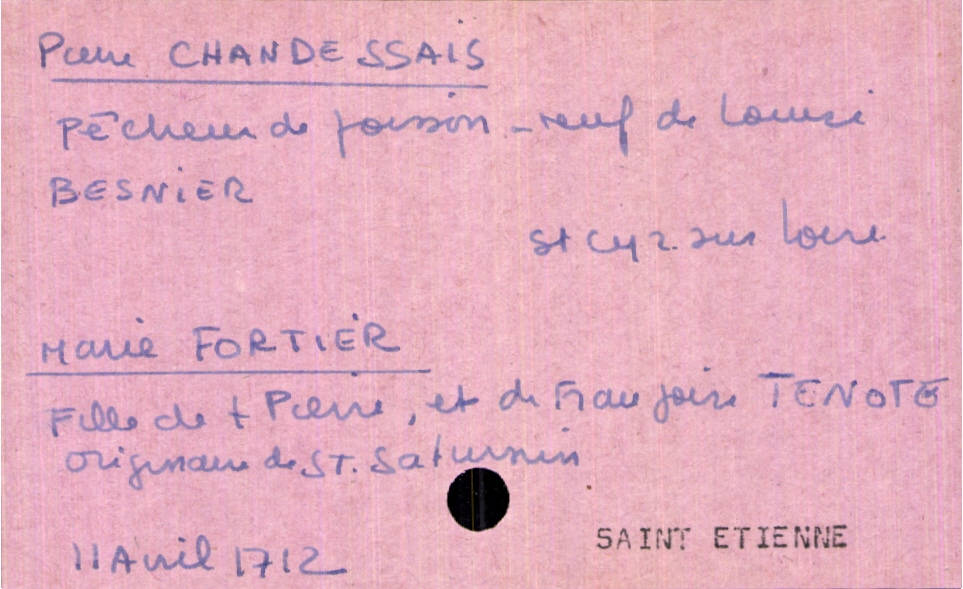 Pierre CHANDESSAIS
Pêcheur de poisson - veuf de Louise
BESNIER
St Cyr sur Loire
Marie FORTIER
Fille de + Pierre, et de Françoise TENOTE
originaire de ST. Saturnin
11 Avril 1712
SAINT ETIENNE